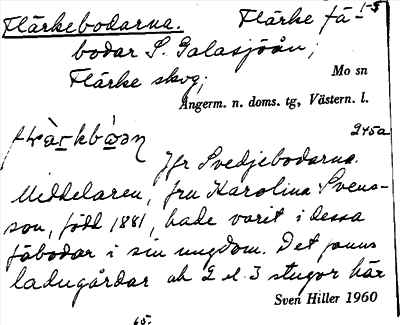 Flärkebodarna. Flärke fä- 1-3
bodar S. Galasjöån;
Flärke skog;
Mo sn
Ångerm. n. doms. tg, Västern. l.
245a
Jfr Svedjebodarna.
Meddelaren, fru Karolina Svens-
son, född 1881, hade varit i dessa
fäbodar i sin ungdom. Det fanns
ladugårdar och 2 el. 3 stugor här
Sven Hiller 1960
65.